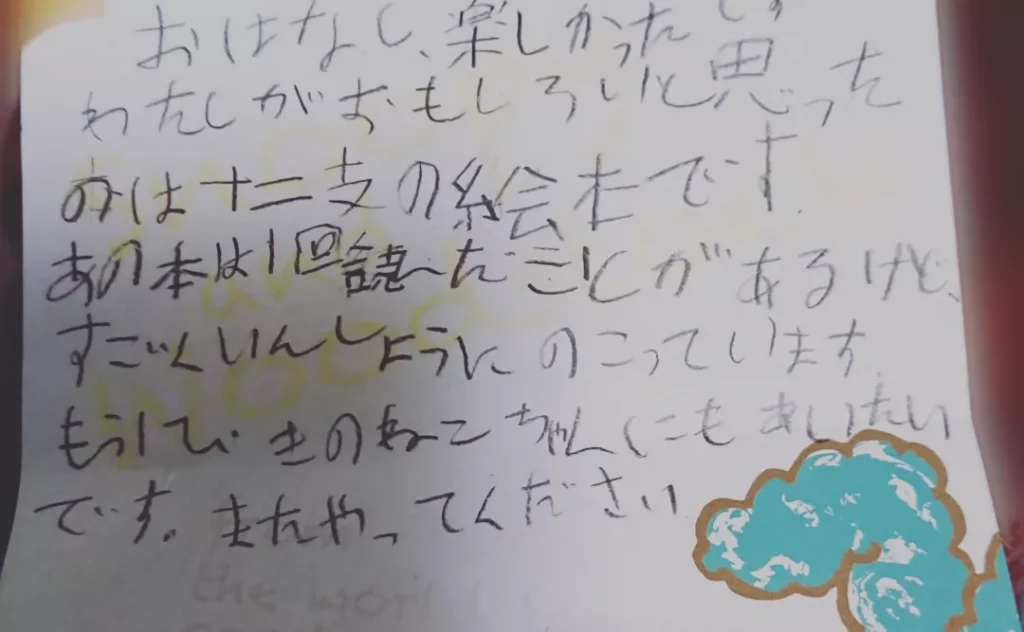 おはなし、楽しかったです
わたしがおもしろいと思った
のは十二支の絵本です.
あの本は1回読んだことがあるけど、
すごくいんしょうにのこっています.
もう1ぴきのねこちゃんにもあいたい
です。またやってください
the world